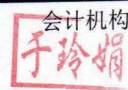 会计机构
于玲娟